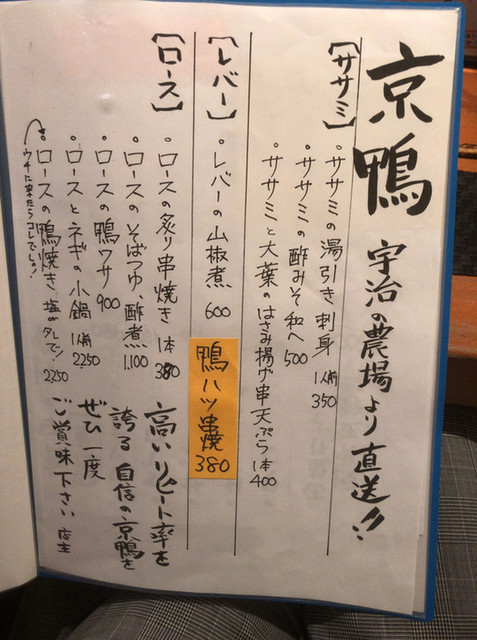 京鴨 宇治の農場より直送!!
【ササミ】
・ササミの湯引き刺身 1人前 350
・ササミの酢みそ和へ 500
・ササミと大葉のはさみ揚げ串天ぷら 1本 400
【レバー】
・レバーの山椒煮 600
鴨ハツ串焼 380
【ロース】
・ロースの炙り串焼き 1本 380
・ロースのそばつゆ、酢煮 1.100
・ロースの鴨ワサ 900
・ロースとネギの小鍋 1人前 2250
・ロースの鴨焼き 塩orタレで! 2250
ウチに来たらコレでしょ!
高いリピート率を
誇る自信の京鴨を
ぜひ一度
ご賞味下さい 店主